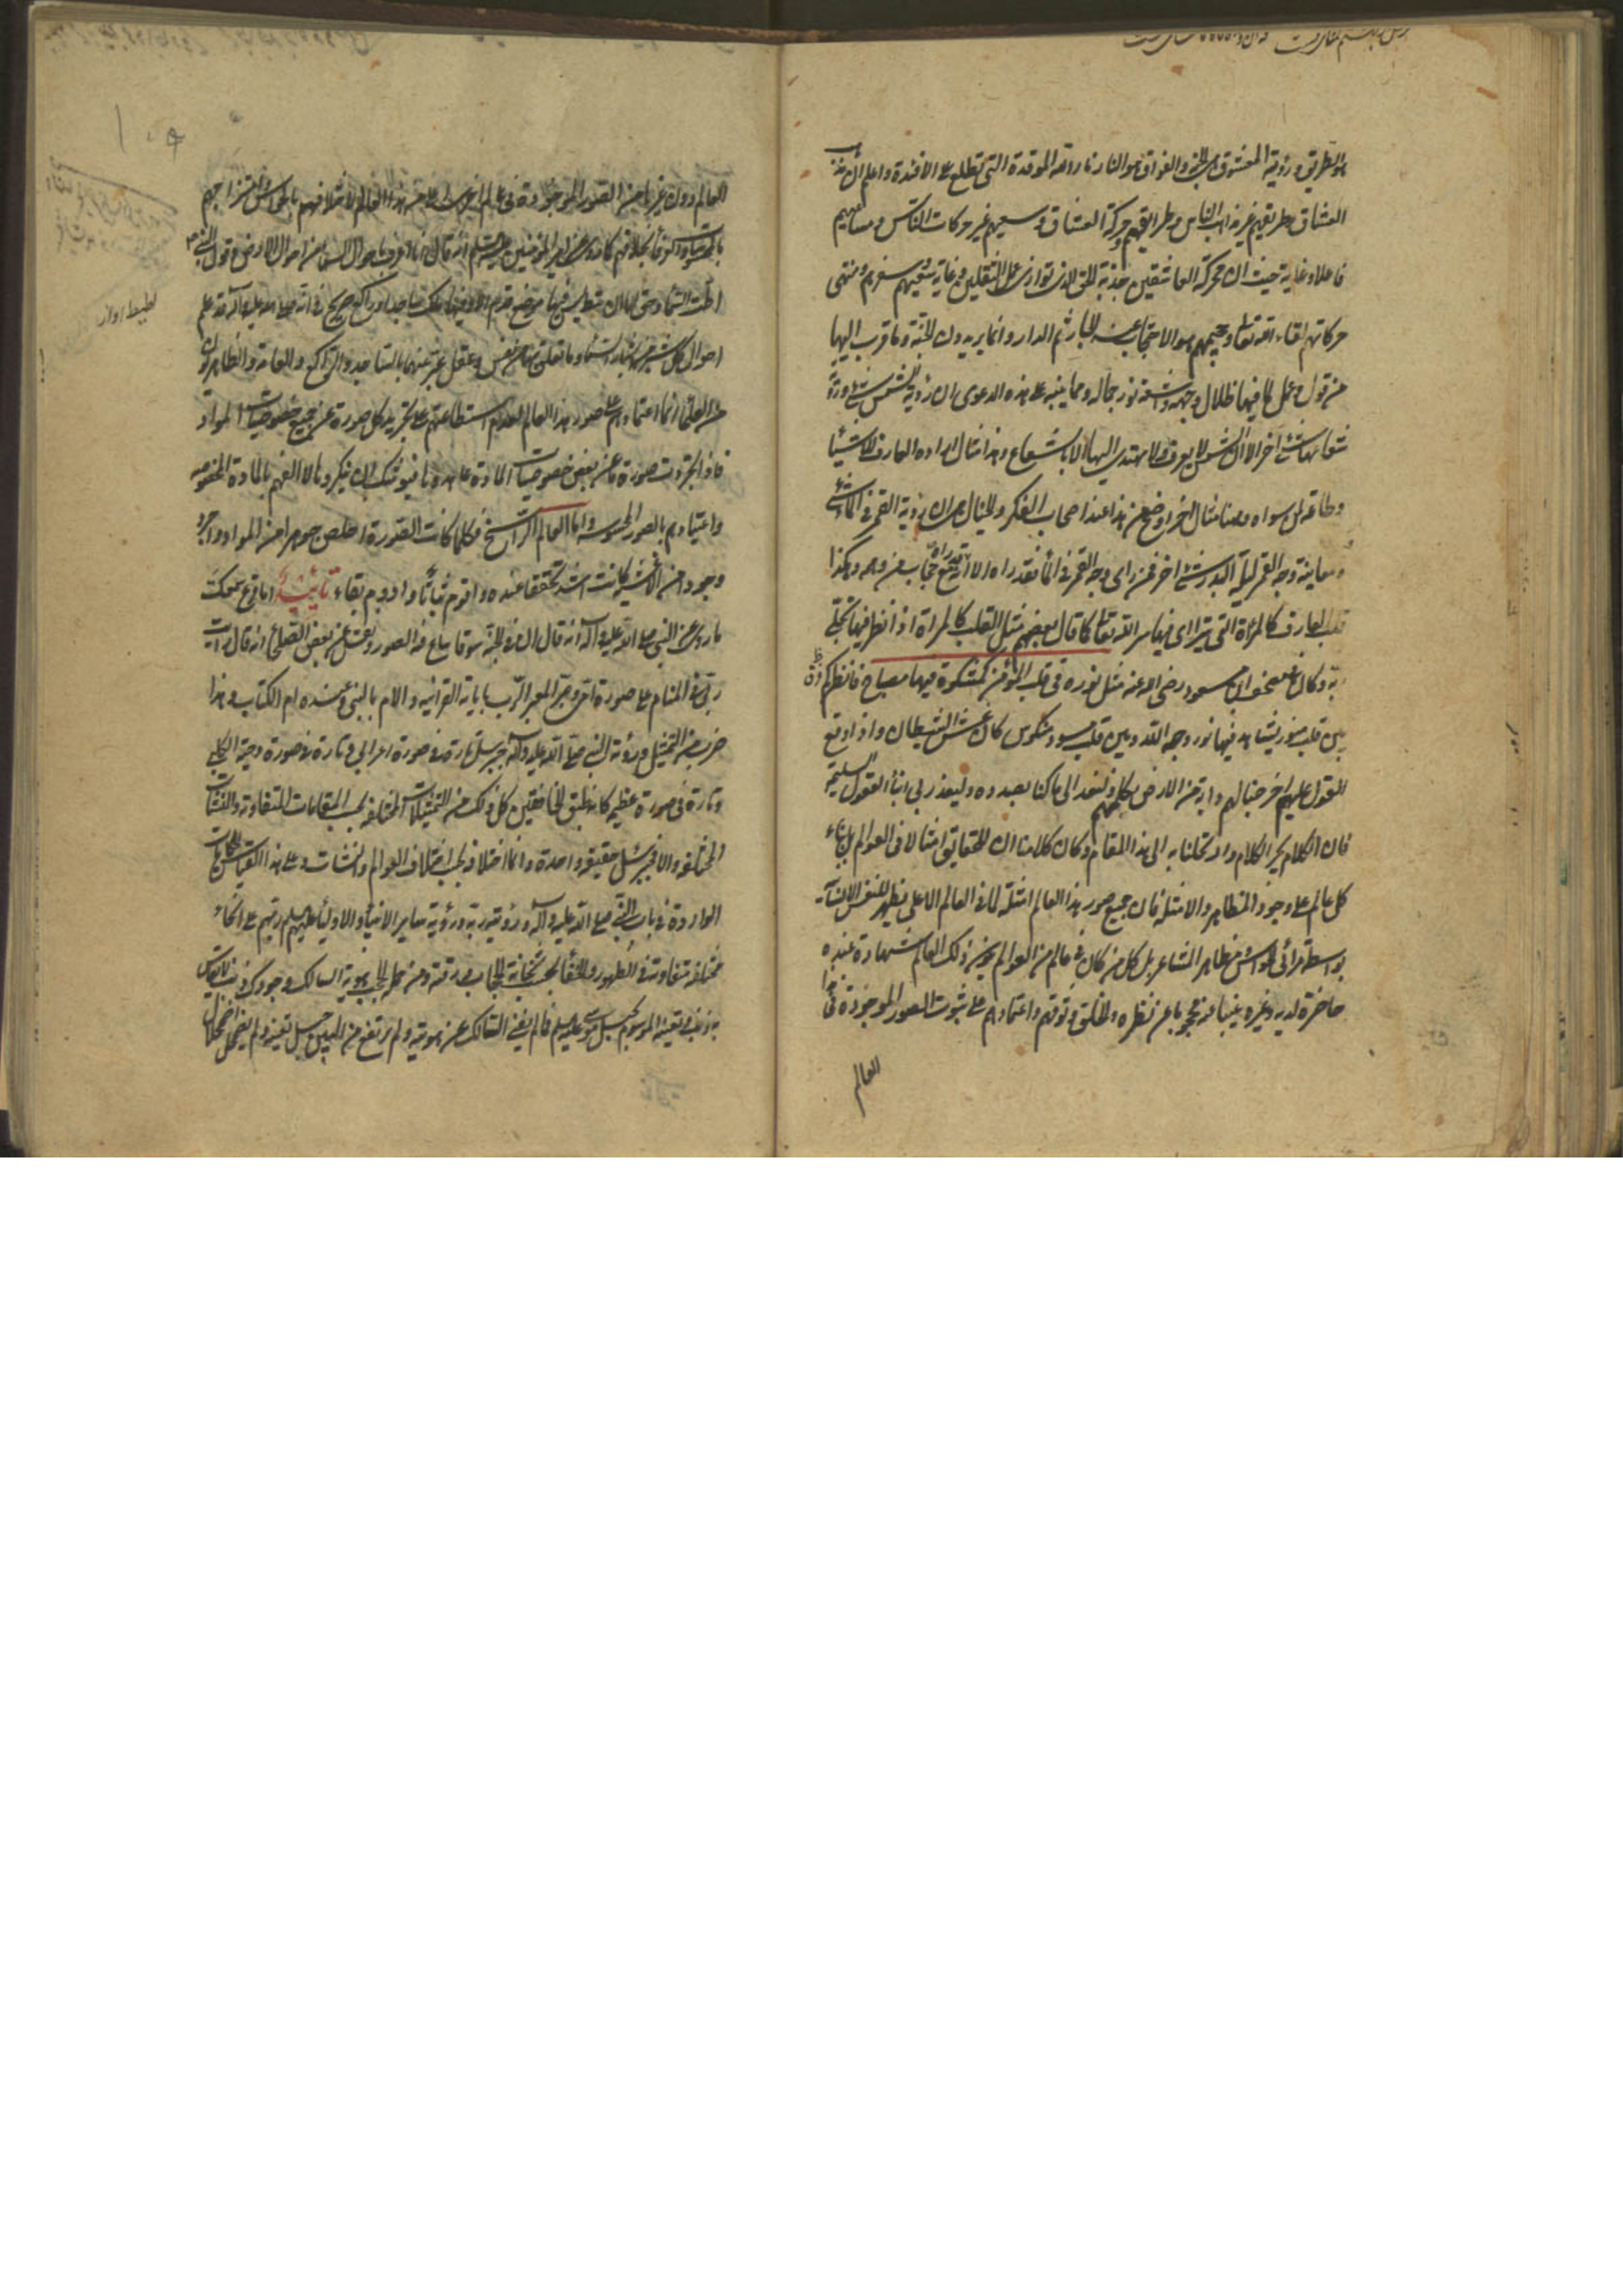 هو الطريق ورؤية المعشوق هي الجنة والفراق هو النار نار الله الموقدة التي تطلع على الافئدة واعلم ان
العشاق طريقهم غير مذاهب الناس وطرايقهم وحركة العشاق وسعيهم غير حركات الناس ومساعيهم
فاعلا وغاية حيث ان محركة العاشقين جذبة الحق الذي توازي عمل الثقلين وغاية سعيهم سفرهم ومنتهى
حركاتهم لقاء الله تعالى وجحيمهم هو الاحتجاب عنه لا نار ثم الدار وانما يريدون الجنة وما قرب اليها
من قول وعمل لما فيها ظلال وجهه واشعة نور جماله ومما ينبه على هذه الدعوى ان رؤية الشمس شيء ورؤية
شعاعها شيء آخر الا ان الشمس لا يعرف ولا يهتدى اليها الا بالشعاع وهذا مثال
وطاعة لمن سواه وههنا مثال اخر اوضح من هذا عند اصحاب الفكر والخيال هو ان رؤية القمر في الماء شيء
ومعاينة وجه القمر ليلة البدر شيء اخر فمن راى وجه القمر في الماء فقد راه الا انه مع حجاب من وجه وهكذا
قلب العارف كالمرآة التي يتراى فيها سر الله تعالى كما قال بعضهم مثل القلب كالمرآة اذا نظر فيها تجلى
ربه وكان في مصحف ابن مسعود رضي الله عنه مثل نوره في قلب المؤمن كمشكوة فيها مصباح فانظر كم فرق
بين قلب منور يشاهد فيها نور وجه الله وبين قلب مسود منكوس كان عش الشيطان واذا وقع
القول عليهم اخرجنا لهم دابة من الارض تكلمهم ولنعد الى ما كنا بصدده وليعذرني ابناء العقول السليمة
فان الكلام يجر الكلام وان تخلنا به الى هذا المقام وكان كلامنا ان للحقايق امثالا في العوالم بل بناء
كل عالم على وجود المظاهر والامثلة فان جميع صور هذا العالم امثلة لما في العالم الاعلى يظهر للنفس الانسانية
بواسطة مرائي الحواس ومظاهر المشاعر بل كل من كان في عالم من العوالم يرى ذلك العالم شهادة عنده
حاضرة لديه وغيره غيبا عنه محجوبا عن نظره والخلق وثوقهم واعتمادهم على ثبوت الصور الموجودة في هذا
العالم
العالم دون غيرها من الصور الموجودة في عالم اخر اعلى من هذا العالم لائتلافهم بالحواس وامتزاجهم
بالمحسوسات اولا كما روي عن امير المؤمنين عليه السلام انه قال انا اعرف باحوال السماء من احوال الارض وقول النبي ص
اطت السماء وحق لها ان تئط ليس فيها موضع قدم الا وفيها ملك ساجد او راكع صريح في انه صلى الله عليه وآله قد علم
احوال كل شبر من اشبار السماء وما تعلق بها من نفس وعقل عبر عنهما بالساجد والراكع والعامة والظاهريون
من العلماء انما اعتمادهم على صور هذا العالم لعدم استطاعتهم على تجريد كل صورة عن جميع خصوصيات المواد
فاذا تجردت صورة ما عن بعض خصوصيات المادة عاندوها فيوشك ان ينكروها لا الفهم بالمادة المخصوصة
واعتيادهم بالصور المحسوسة واما العالم الراسخ فكلما كانت الصورة اخلص جوهرا من المواد واجرد
وجودا من الاغشية كانت اشد تحققا عنده واقوم ثباتا وادوم بقاء تأييد اما قرع سمعك
ما روي عن النبي صلى الله عليه وآله انه قال ان في الجنة سوقا يباع فيه الصور ونقل عن بعض الصلحاء انه قال رايت
ربي في المنام على صورة امي وعبر المعبر الرب باياته القرآنية والام بالنبي وعنده ام الكتاب وهذا
ضرب من التمثيل ورؤية النبي صلى الله عليه وآله جبرئيل تارة في صورة اعرابي وتارة في صورة دحية الكلبي
وتارة في صورة عظيم كانه طبق الخافقين كل ذلك من التمثيلات المختلفة بحسب المقامات المتفاوتة والنشات
المختلفة والا فجبرئيل حقيقة واحدة وانما اختلافه بحسب اختلاف العوالم والنشات وعلى هذا القياس الحكايات
الواردة في باب النبي صلى الله عليه وآله ورؤيته ربه ورؤية ساير الانبياء والاولياء عليهم السلم ربهم على انحاء
مختلفة متفاوتة في الظهور والخفاء بحسب ثخانة الحجاب ورقته ومن جملة الحجب هوية السالك وجودك ذنب لا يقاس
به ذنب وتعينه الموسوم بجبل موسى عليه السلم فما لم يفن السالك عن هويته ولم يرتفع من البين جبل تعينه ولم يضمحل
اطيط اواز